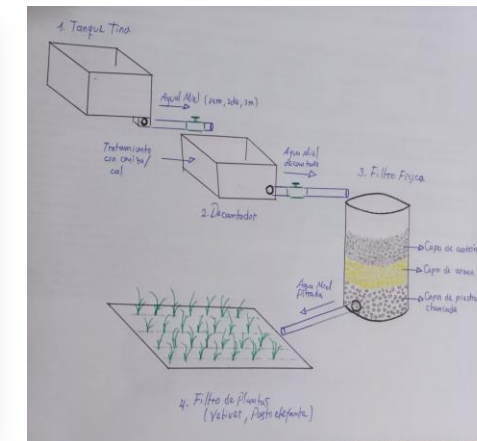 1. Tanque Tina
Agua Miel (1em, 2da, 3m)
Tratamiento
con ceniza/
cal
Agua Miel
decantada
2. Decantador
3. Filtro Físico
Capa de carbón
Capa de arena
Capa de piedra
chancada
Agua Miel
filtrada
4. Filtro de Plantas
(Vetiver, Pasto elefante)